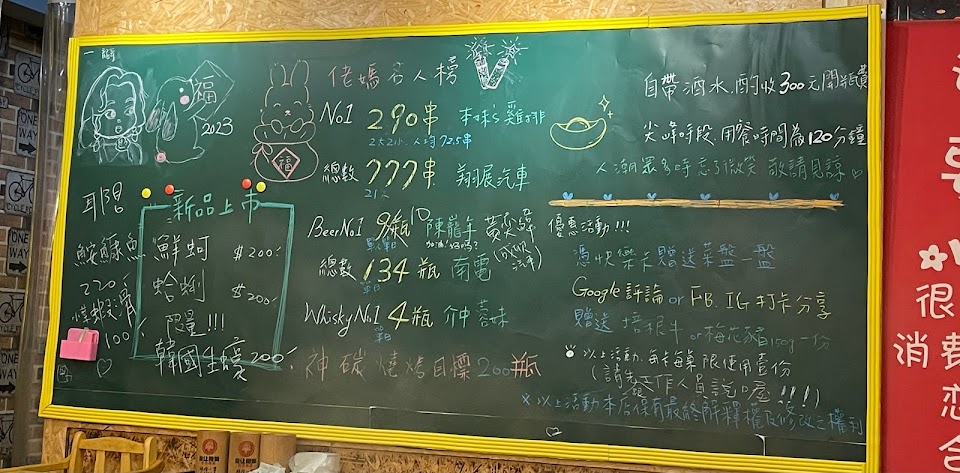 福
2023
佬媽名人榜
No.1 290串 本味's雞排
2大2小.人均72.5串
總數 777串 翔展汽車
21人
福
Beer No.1 9瓶 10 陳龍年 黃奕錦
加油!好嗎?
總數 134瓶 南電
Whisky No.1 4瓶 介中蓉妹
神碳燒烤目標200瓶
耳門
鮟鱇魚
220
100
新品上市
鮮蚵 $200
蛤蜊 $200
限量!!!
韓國生蠔200
自帶酒水.酌收300元開瓶費
尖峰時段.用餐時間為120分鐘
人潮眾多時 忘了微笑 敬請見諒
優惠活動!!!
憑快樂卡贈送菜盤一盤
Google評論 or FB. IG打卡分享
贈送 培根牛 or 梅花豬150g一份
以上活動.每卡每桌限使用壹份
(請先跟工作人員說口屋!!!)
※以上活動本店保有最終解釋權及修改之權利
ONE WAY
很
消費
恋
合